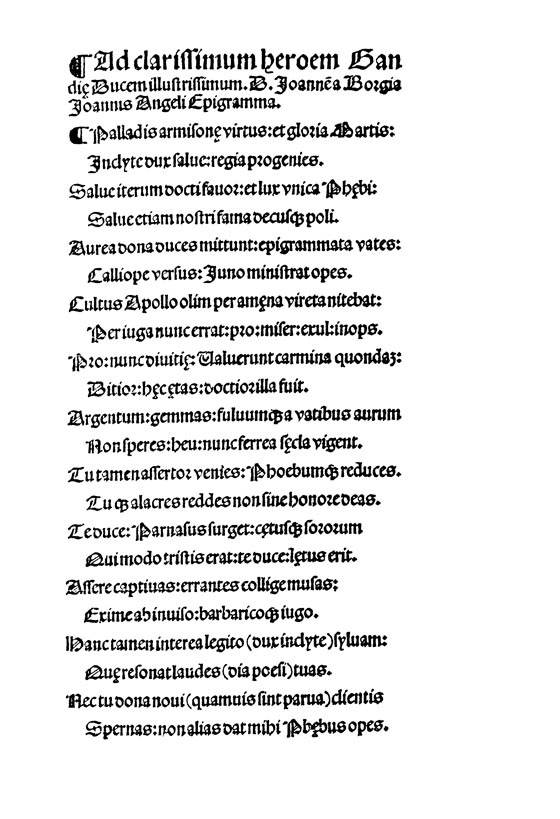 ¶ Ad clarissimum heroem Gan
dię Ducem illustrissimum. D. Joannē a Borgia
Joannis Angeli Epigramma.
¶ Palladis armisonę virtus: et gloria Martis:
Inclyte dux salue: regia progenies.
Salue iterum docti fauor: et lux vnica Phębi:
Salue etiam nostri fama decusqꝫ poli.
Aurea dona duces mittunt: epigrammata vates:
Calliope versus: Juno ministrat opes.
Cultus Apollo olim per amęna vireta nitebat:
Per iuga nunc errat: pro: miser: exul: inops.
Pro: nunc diuitię: Valuerunt carmina quondaꝫ:
Ditior: hęc ętas: doctior illa fuit.
Argentum: gemmas: fuluumqꝫ a vatibus aurum
Non speres: heu: nunc ferrea sęcla vigent.
Tu tamen assertor venies: Phoebumqꝫ reduces.
Tu qꝫ alacres reddes non sine honore deas.
Te duce: Parnasus surget: cętusqꝫ sororum
Qui modo tristis erat: te duce: lętus erit.
Assere captiuas: errantes collige musas:
Exime ab inuiso: barbaricoqꝫ iugo.
Hanc tamen interea legito (dux inclyte) syluam:
Quę resonat laudes (dia poesi) tuas.
Nec tu dona noui (quamuis sint parua) clientis
Spernas: non alias dat mihi Phębus opes.